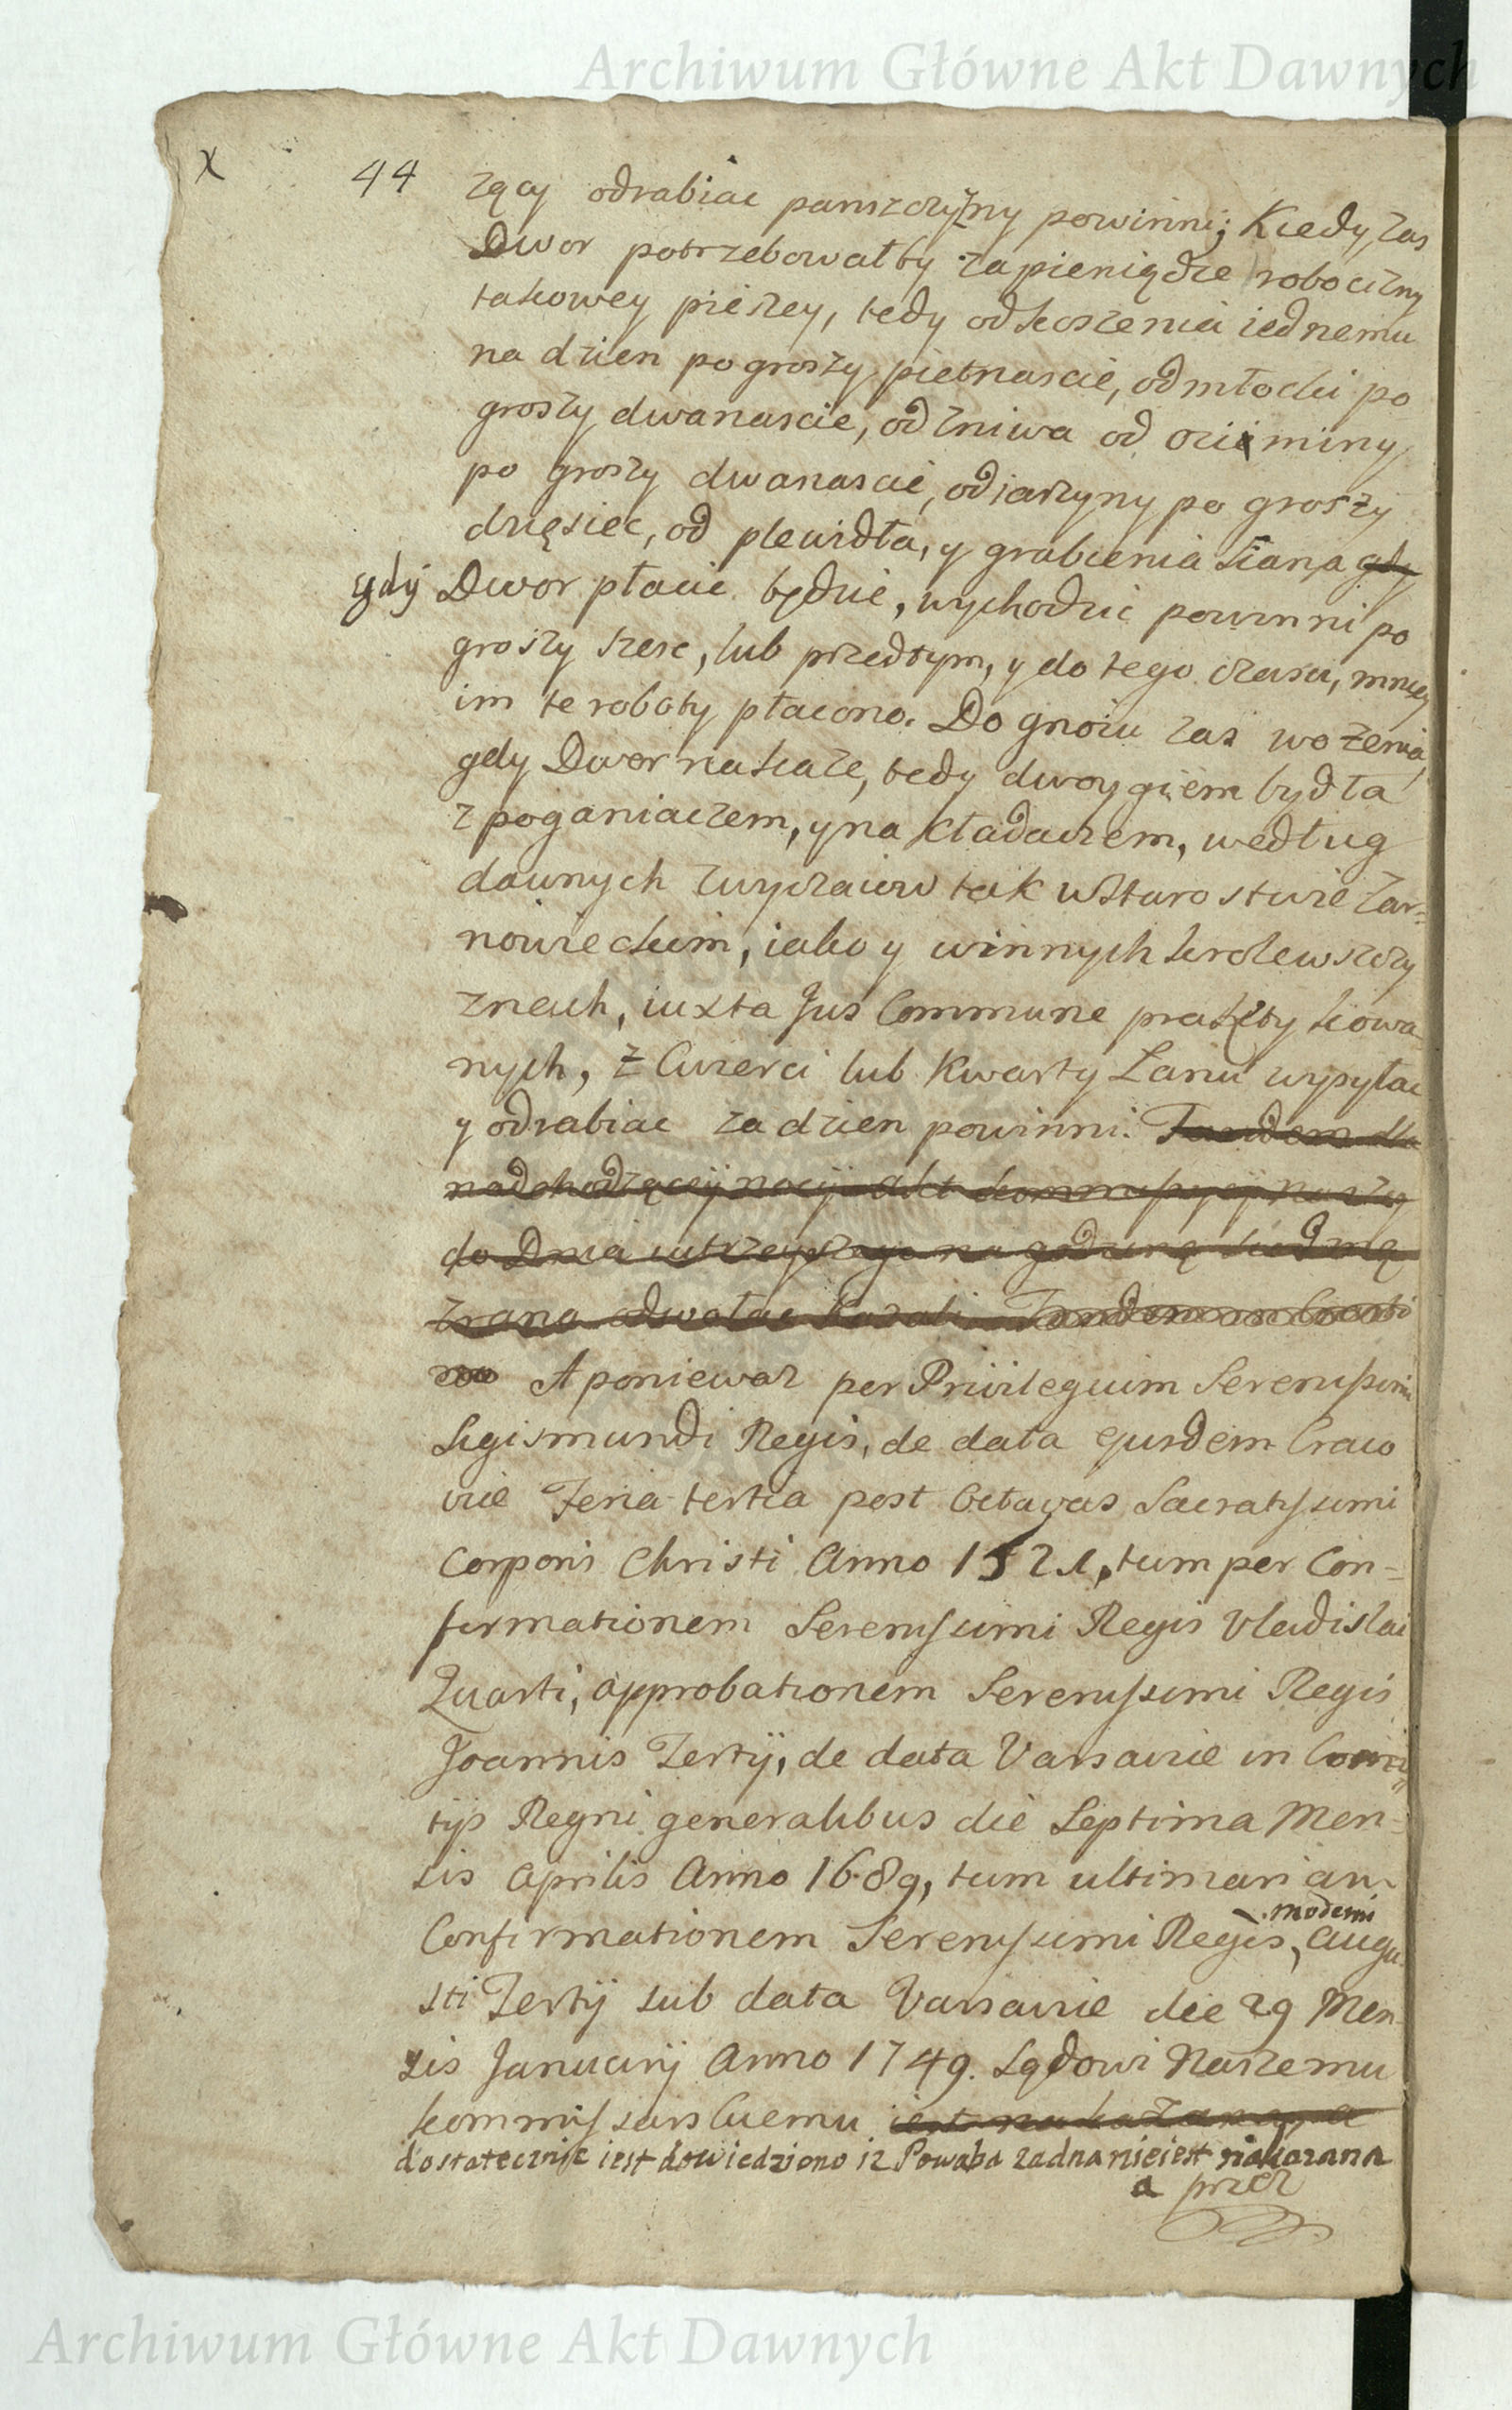 Archiwum Główne Akt Dawnych
X 44
zący odrabiac panszczyzny powinni; Kiedy zas
Dwor potrzebowałby za pieniądze robocizny
takowey pieszey, tedy od koszenia iednemu
na dzien po groszy pietnascie, od młocki po
groszy dwanascie, od zniwa od oziminy
po groszy dwanascie, od iarzyny po groszy
dziesiec, od plewidła, y grabienia siana gdy
gdy Dwor płacic będzie, wychodzic powinni po
groszy szesc, lub przedtym, y do tego czasu, mniey
im te roboty płacono. Do gnoiu zas wozenia,
gdy Dwor nakaze, tedy dwoygiem bydła
z poganiaczem, y nakładaczem, według
dawnych zwyczaiow tak w Starostwie Zar=
nowieckim, iako y w innych krolewszczy
znach, iuxta Jus Commune praktykowa
nych, z Cwierci lub Kwarty Łanu wysyłac
y odrabiac za dzien powinni. Tandem dla
nadchodzącey nocy Akt kommissyi naszey
do Dnia iutrzeyszego na godzinę siodmą
zrana odwołac kazali
A poniewaz per Privilegium Serenissimi
Sigismundi Regis, de data ejusdem Craco
vie Feria tertia post Octavas Sacratissimi
Corporis Christi Anno 1521, tum per Con=
firmationem Serenissimi Regis Vladislai
Quarti, approbationem Serenissimi Regis
Joannis Tertij, de data Varsavie in Comi=
tijs Regni generalibus die Septima Men=
sis Aprilis Anno 1689, tum ultimariam
Confirmationem Serenissimi Regis, moderni Augu
sti Tertij sub data Varsavie die 29 Men
sis Januarij Anno 1749. Sądowi Naszemu
kommissarskiemu iest
dostatecznie iest dowiedziono iz Powaba zadna nieiest nakazana
a przez
Archiwum Główne Akt Dawnych